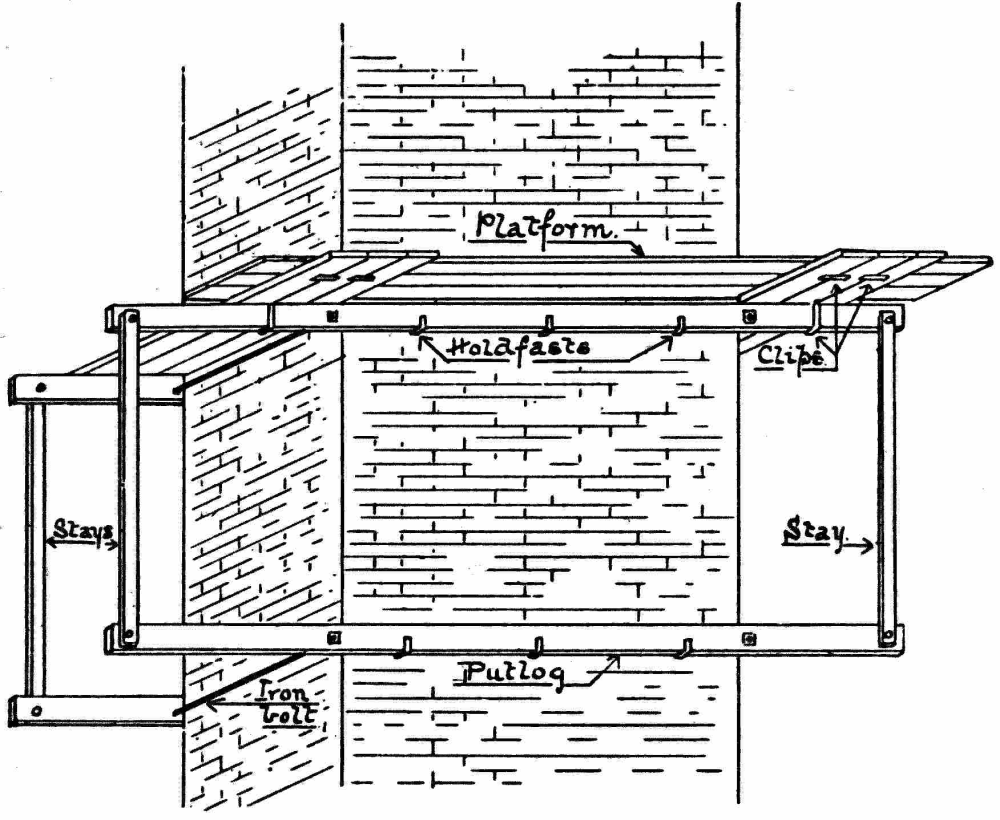 Platform.
Holdfasts
Clips.
Stays
Stay.
Putlog
Iron
bolt